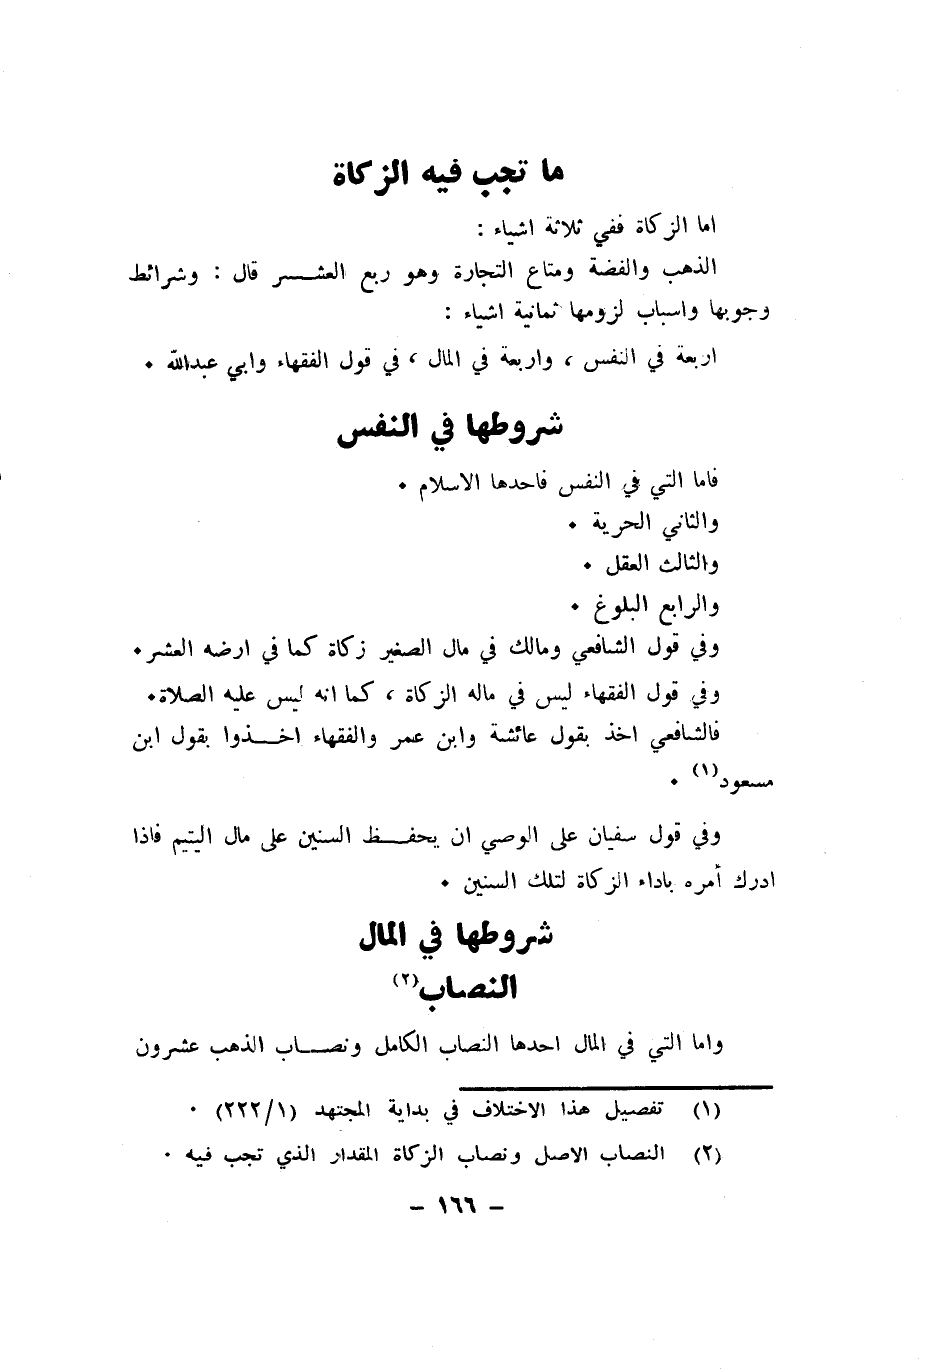 ما تجب فيه الزكاة
اما الزكاة ففي ثلاثة اشياء :
الذهب والفضة ومتاع التجارة وهو ربع العشـــر قال : وشرائط
وجوبها واسباب لزومها ثمانية اشياء :
اربعة في النفس ، واربعة في المال ، في قول الفقهاء وابي عبدالله ٠
شروطها في النفس
فاما التي في النفس فاحدها الاسلام ٠
والثاني الحرية ٠
والثالث العقل ٠
والرابع البلوغ ٠
وفي قول الشافعي ومالك في مال الصغير زكاة كما في ارضه العشر٠
وفي قول الفقهاء ليس في ماله الزكاة ، كما انه ليس عليه الصلاة٠
فالشافعي اخذ بقول عائشة وابن عمر والفقهاء اخـــذوا بقول ابن
مسعود(١) ٠
وفي قول سفيان على الوصي ان يحفـــظ السنين على مال اليتيم فاذا
ادرك أمره باداء الزكاة لتلك السنين ٠
شروطها في المال
النصاب(٢)
واما التي في المال احدها النصاب الكامل ونصـــاب الذهب عشرون
(١) تفصيل هذا الاختلاف في بداية المجتهد (٢٢٢/١) ٠
(٢) النصاب الاصل ونصاب الزكاة المقدار الذي تجب فيه ٠
– ١٦٦ –